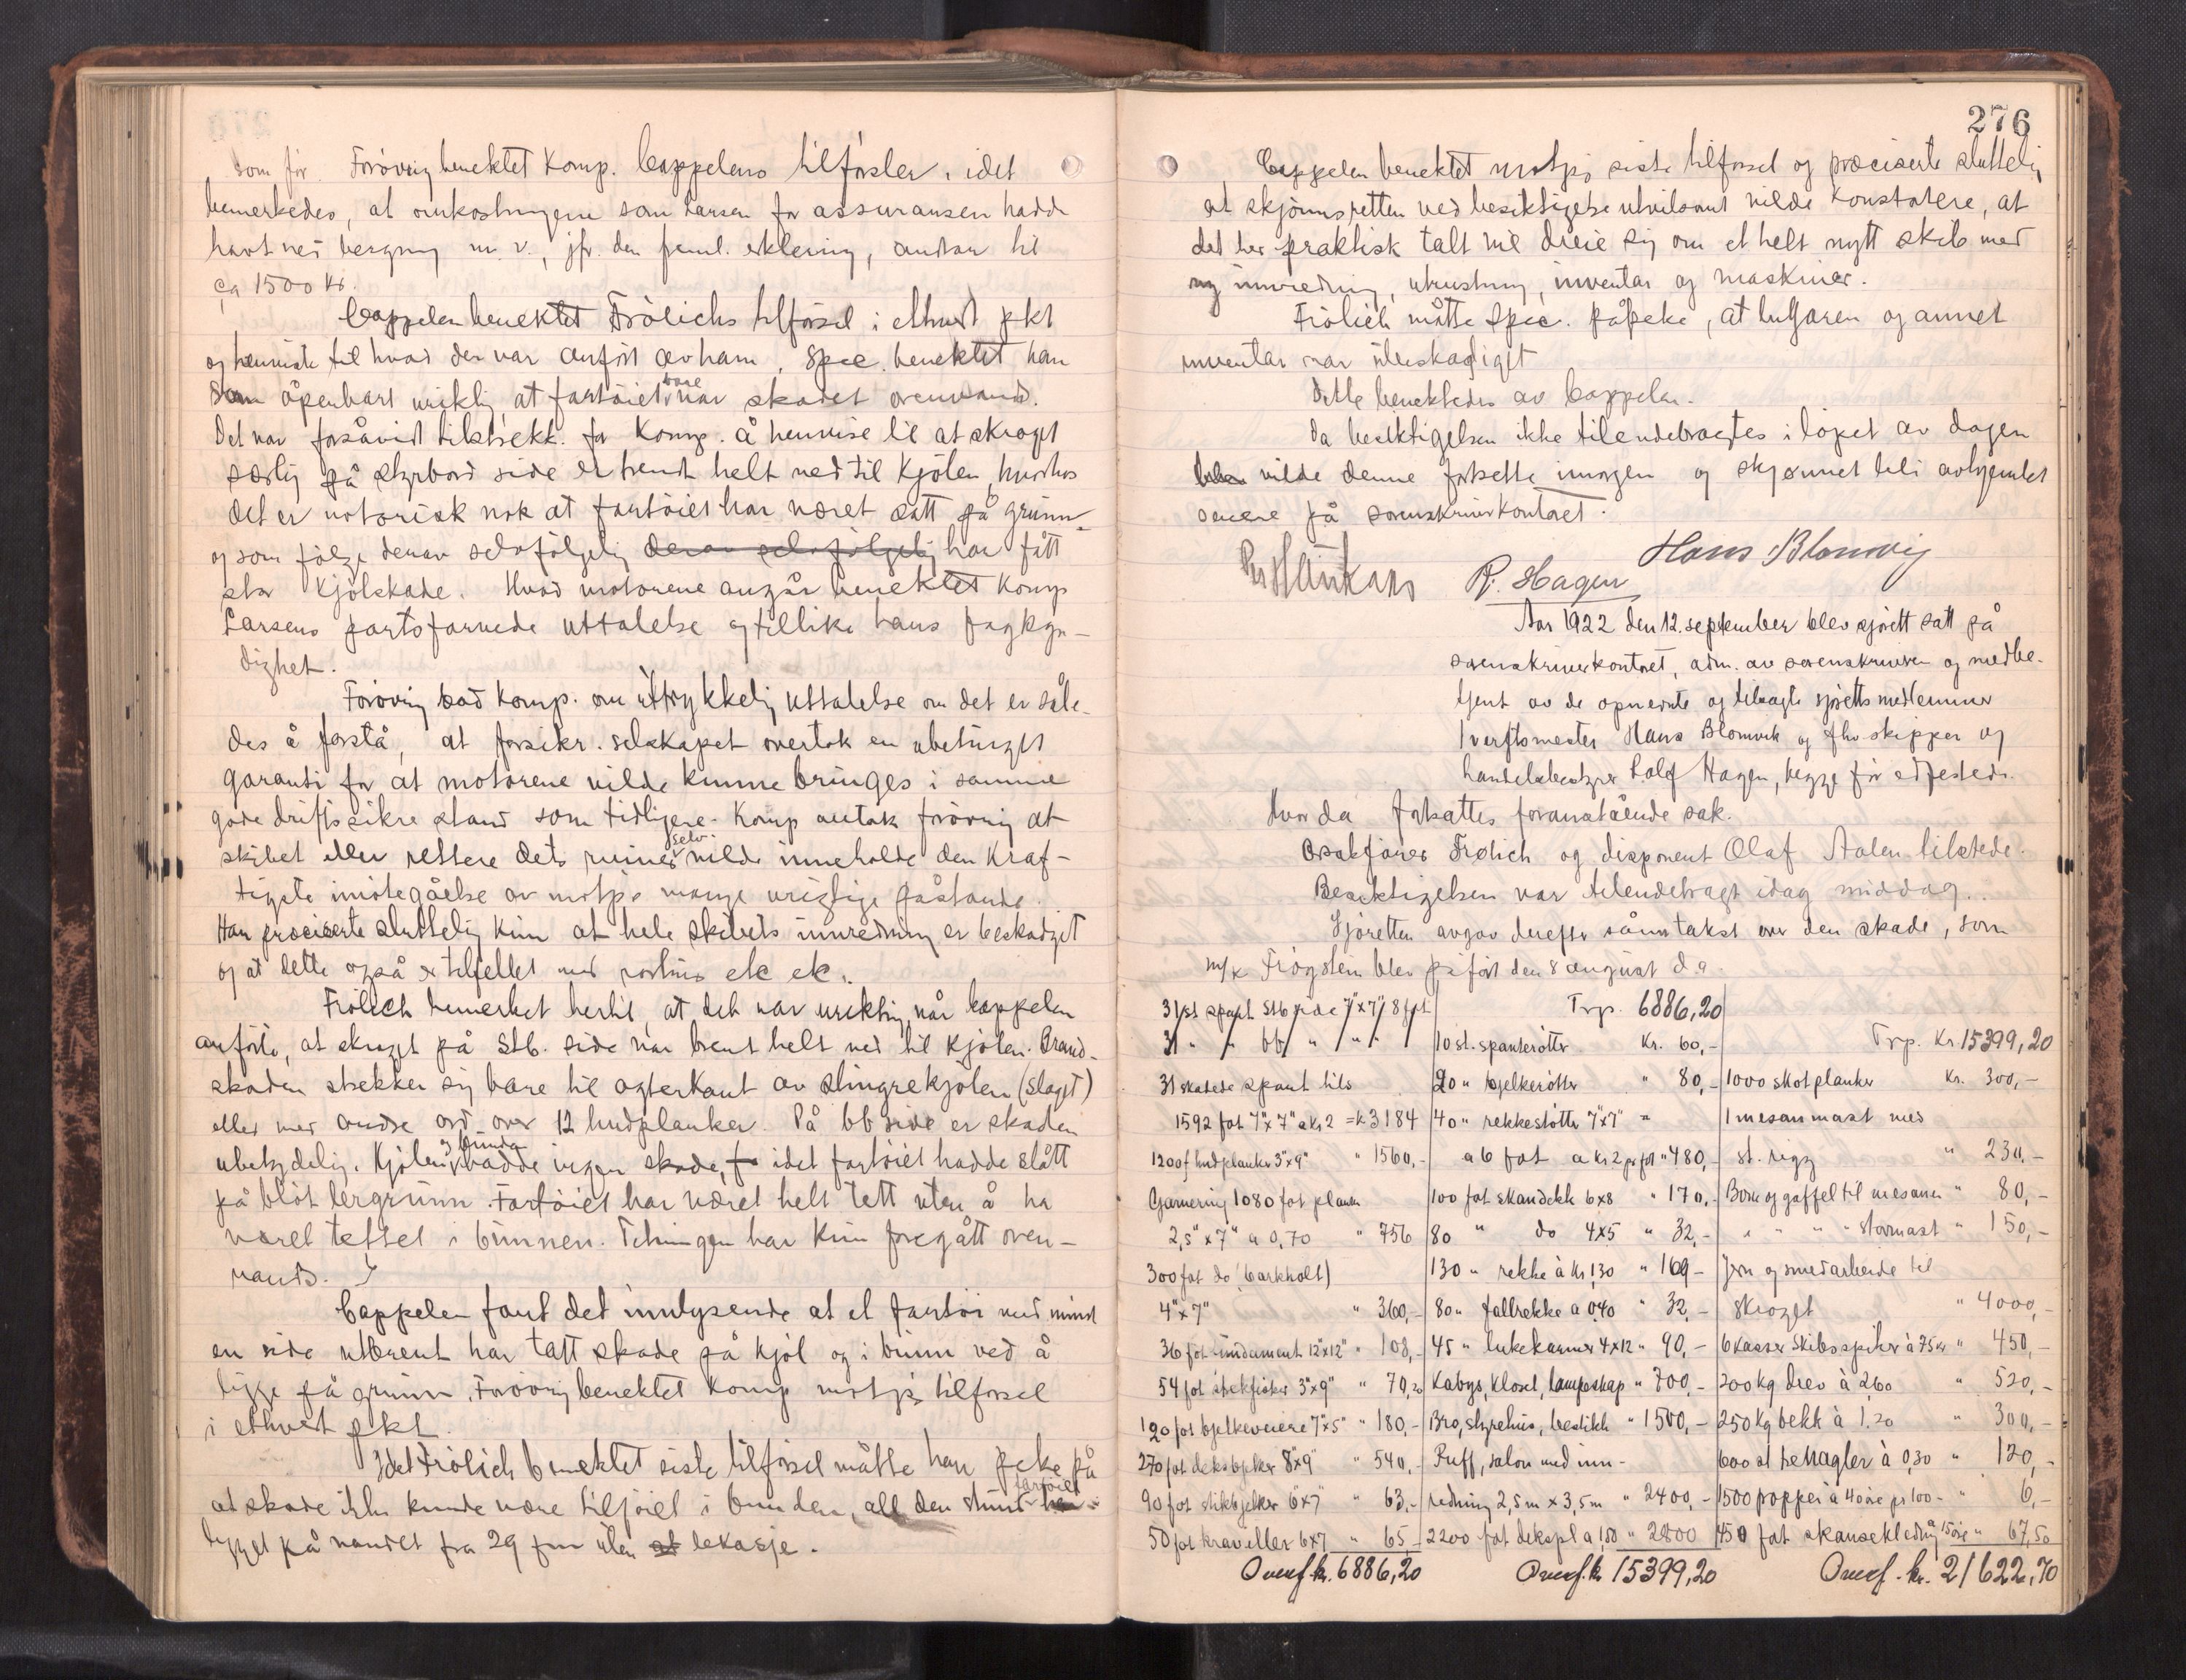 som før. Forövrig benektet Komp. Cappelens tilførsler, idet
bemerkedes, at omkostningene som Larsen for assuransen hadde
havt ved bergning m. v., jfr. den freml. erklering, androg til
ca 1500 kr.
Cappelen benektet Frölichs tilførsel i ethvert pkt
og henviste til hvad der var anført av ham. Spec. benektet han
som åpenbart uriktig at fartöiet bare var skadet ovenvands.
Det var forsåvidt tilstrekk. for Komp. å henvise til at skroget
særlig på styrbord side er brent helt ned til Kjölen, hvorhos
det er notorisk nok at fartöiet har været satt på grunn
og som fölge derav selvfölgelig derav selvfölgelig har fått
stor Kjölskade. Hvad motorene angår benektet Komp
Larsens partsfarvede uttalelse og tillike hans fagkyn-
dighet.
Forövrig bad Komp. om uttrykkelig uttalelse om det er såle-
des å forstå, at forsikr. selskapet overtok en ubetinget
garanti for at motorene vilde kunne bringes i samme
gode driftssikre stand som tidligere. Komp antok forövrig at
skibet eller rettere dets ruiner selv vilde inneholde den kraf-
tigste imötegåelse av motp's mange uriktige påstande.
Han præciserte sluttelig kun at hele skibets innredning er beskadiget
og at dette også er tilfellet med rorhus etc etc.
Frölich bemerket hertil, at det var uriktig når Cappelen
anförte, at skroget på Stb. side var brent helt ned til Kjölen. Brand-
skaden strekker sig bare til agterkant av slingrekjölen (slaget)
eller med andre ord over 12 hudplanker. På bb side er skaden
ubetydelig. Kjölen og bunden hadde ingen skade, idet fartöiet hadde stått
på blöt lergrunn. Fartöiet har været helt tett uten å ha
været tettet i bunnen. Tetningen har kun foregått oven-
vands.
Cappelen fant det innlysende at et fartöi med minst
en side utbrent har tatt skade på kjöl og i bunn ved å
ligge på grunn. Forövrig benektet Komp motp's tilførsel
i ethvert pkt.
Idet Frölich benektet siste tilförsel måtte han peke på
at skade ikke kunde være tilföiet i bunden, all den stund fartöiet har
ligget på vandet fra 29 uten at lekasje.
276
Cappelen benektet motp's siste tilførsel og præciserte sluttelig
at skjönnsretten ved besiktigelse utvilsomt vilde konstatere, at
det her praktisk talt vil dreie sig om et helt nytt skib med
ny innredning, utrustning, inventar og maskiner.
Frölich måtte spec. påpeke, at lugaren og annet
inventar var ubeskadiget
Dette benektedes av Cappelen.
Da besiktigelsen ikke tilendebragtes i löpet av dagen
vilde denne fortsette imorgen og skjønnet bli avhjemlet
senere på sorenskriverkontoret.
R. Hagen Hans Blomvig
Aar 1922 den 12. september blev sjørett satt på
sorenskriverkontoret, adm. av sorenskriveren og medbe-
tjent av de opnevnte og tilsagte sjøretts medlemmer
verftsmester Hans Blomvik og fhv. skipper og
handelsbestyrer Rolf Hagen, begge før edfestede.
Hvorda fortsattes foranstående sak.
Osakfører Frølich og disponent Olaf Aalen tilstede.
Besiktigelsen var tilendebragt idag middag.
Sjøretten avgav derefter sånn takst over den skade, som
m/k Frögstein blev påført den 8 august d.a.
31 st spant Stb side 7"x7" 8 fot
31 " " bb " " "
31 skadede spant tils
1592 fot 7"x7" a kr 2 = k 3184
1200 f hudplanker 3"x9" " 1560,-
Garnering 1080 fot planker
2,5"x7" a 0,70 " 756
300 fot do (barkholt)
4"x7" " 360,-
36 fot fundament 12"x12" " 108,-
54 fot stekfisker 3"x9" " 70,20
120 fot bjelkeveiere 7"x5" " 180,-
270 fot deksbjelker 8"x9" " 540,-
90 fot stikbjelker 6"x7" " 63,-
50 fot kraveller 6x7 " 65,-
Overf. kr. 6886,20
Trp. 6886,20
10 st. spanterötter kr. 60,-
20 " bjelkerötter " 80,-
40 " rekkestötter 7"x7" =
a 6 fot a kr 2 pr fot " 480,-
100 fot skandekk 6x8 " 170,-
80 " do 4x5 " 32,-
130 " rekke à kr 1,30 " 169-
80 " fallrekke a 0,40 " 32,-
45 " lukekarmer 4x12 " 90,-
Kabys, klosel, lampeskap " 700,-
Bro, styrehus, bestikk " 1500,-
Ruff, salon med inn-
redning 2,5m x 3,5m " 2400,-
2200 fot dekspl a 1,50 " 2800
Overf. kr 15399,20
Trp. kr 15399,20
1000 skotplanker kr. 300,-
1 mesanmast med
st. rigg " 230,-
Bom og gaffel til mesanen " 80,-
" " " " stormast " 150,-
Jern og smedarbeide til
skroget " 4000,-
6 kasser skibsspiker à 75 kr " 450,-
200 kg drev à 2,60 " 520,-
250 kg bekk à 1.20 " 300,-
600 st trenagler à 0,30 " 120,-
1500 propper à 40 öre pr 100- " 6,-
450 fot skansekledning à 15 öre " 67,50
Overf. kr. 21622,70